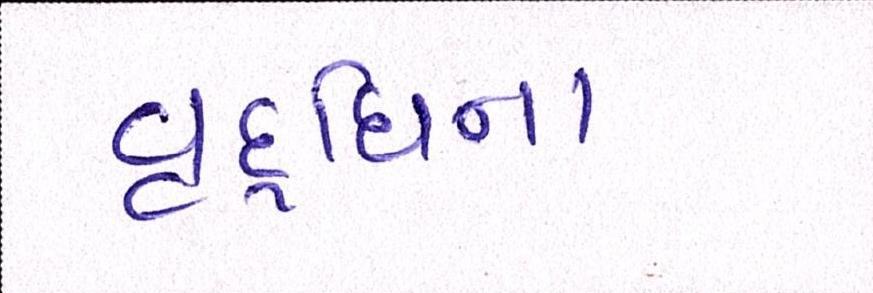 વૃદ્ધિના